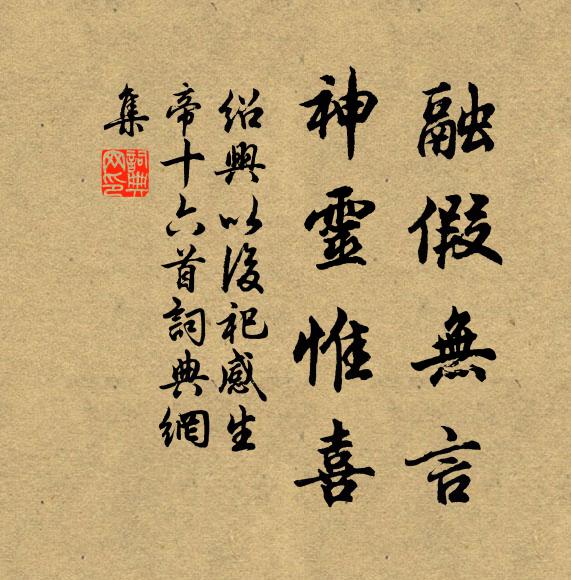 融假無言
神靈惟喜
紹興以後祀感生
帝十六首詞典網
集
詞典網印